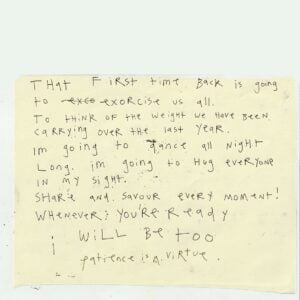 THAT FIRST time BACK is going
to exco exorcise us all.
TO THINK OF THE WEIGHT WE HAVE BEEN
CARRYING OVER THE LAST YEAR.
Im going to dance all Night
Long. im going to HUG everyone
IN MY SIGHT.
SHARE AND SAVOUR EVERY MOMENT!
WHENEVER YOU'RE READY
i WILL BE TOO
patience is A VIRTUE.